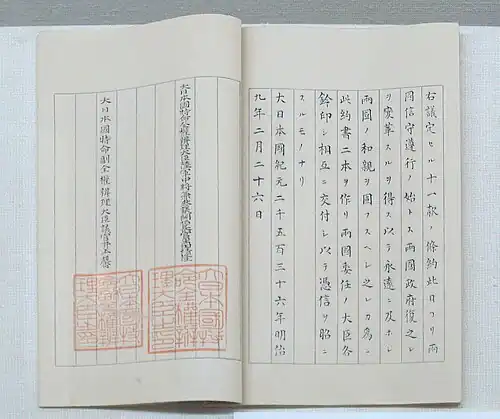 右議定セル十一款ノ條約此日ヨリ兩
國信守遵行ノ始トス兩國政府復之レ
ヲ變革スルヲ得ス以テ永遠ニ及ホシ
兩國ノ和親ヲ固フスヘシ之レカ爲ニ
此約書二本ヲ作リ兩國委任ノ大臣各
鈐印シ相互ニ交付シ以テ憑信ヲ昭ニ
スルモノナリ
大日本國紀元二千五百三十六年明治
九年二月二十六日
大日本國特命全權辨理大臣陸軍中將兼參議開拓長官黒田清隆
大日本國特命副全權辨理大臣議官井上馨